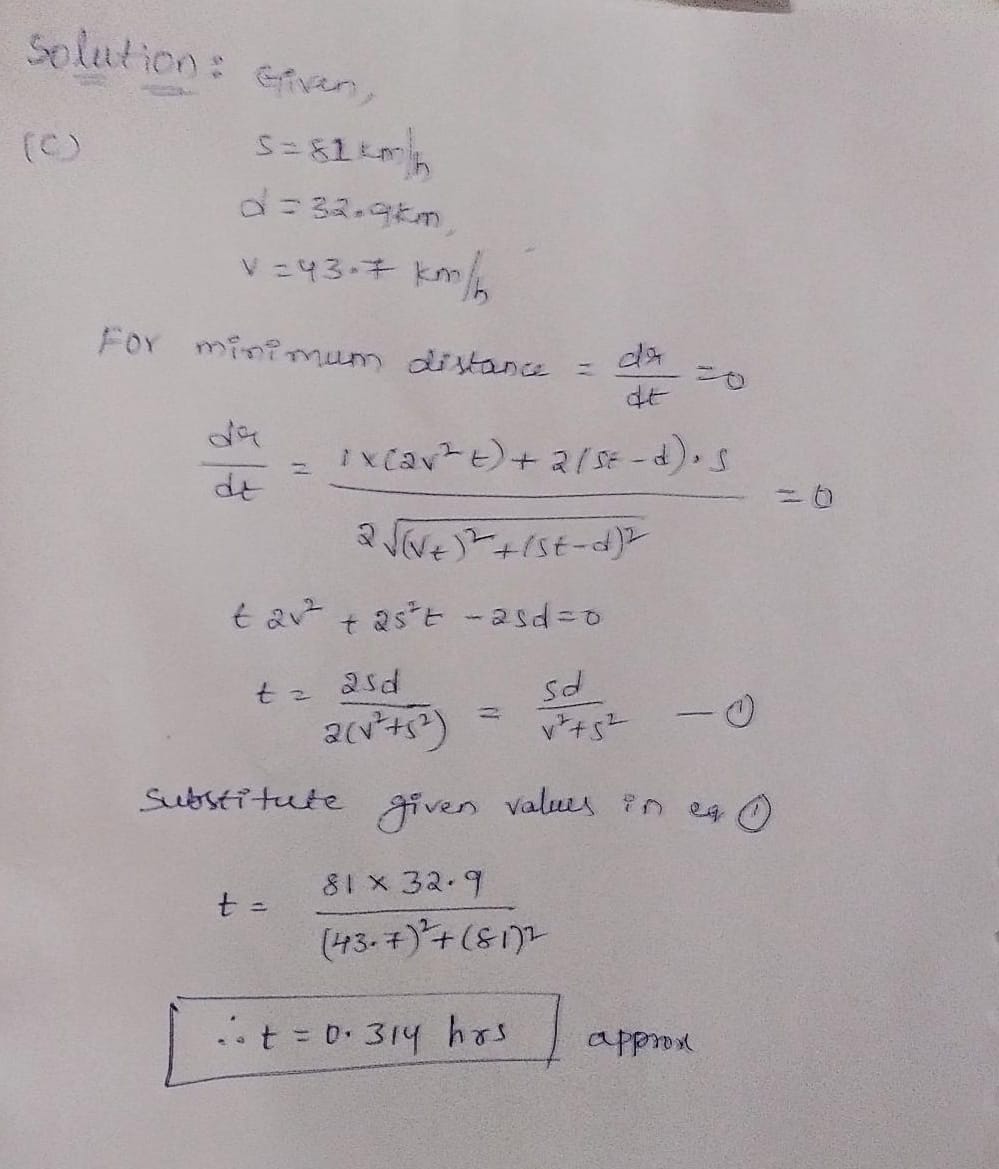 Solution: Given,
(C) S = 81 km/h
d = 32.9 km,
V = 43.7 km/h
For minimum distance = dx/dt = 0
dx/dt = (1×(2v²t) + 2(st-d).s) / (2√((vt)² + (st-d)²)) = 0
t 2v² + 2s²t - 2sd = 0
t = 2sd / 2(v²+s²) = sd / v²+s² — ①
Substitute given values in eq ①
t = 81 × 32.9 / (43.7)² + (81)²
∴ t = 0.314 hrs approx